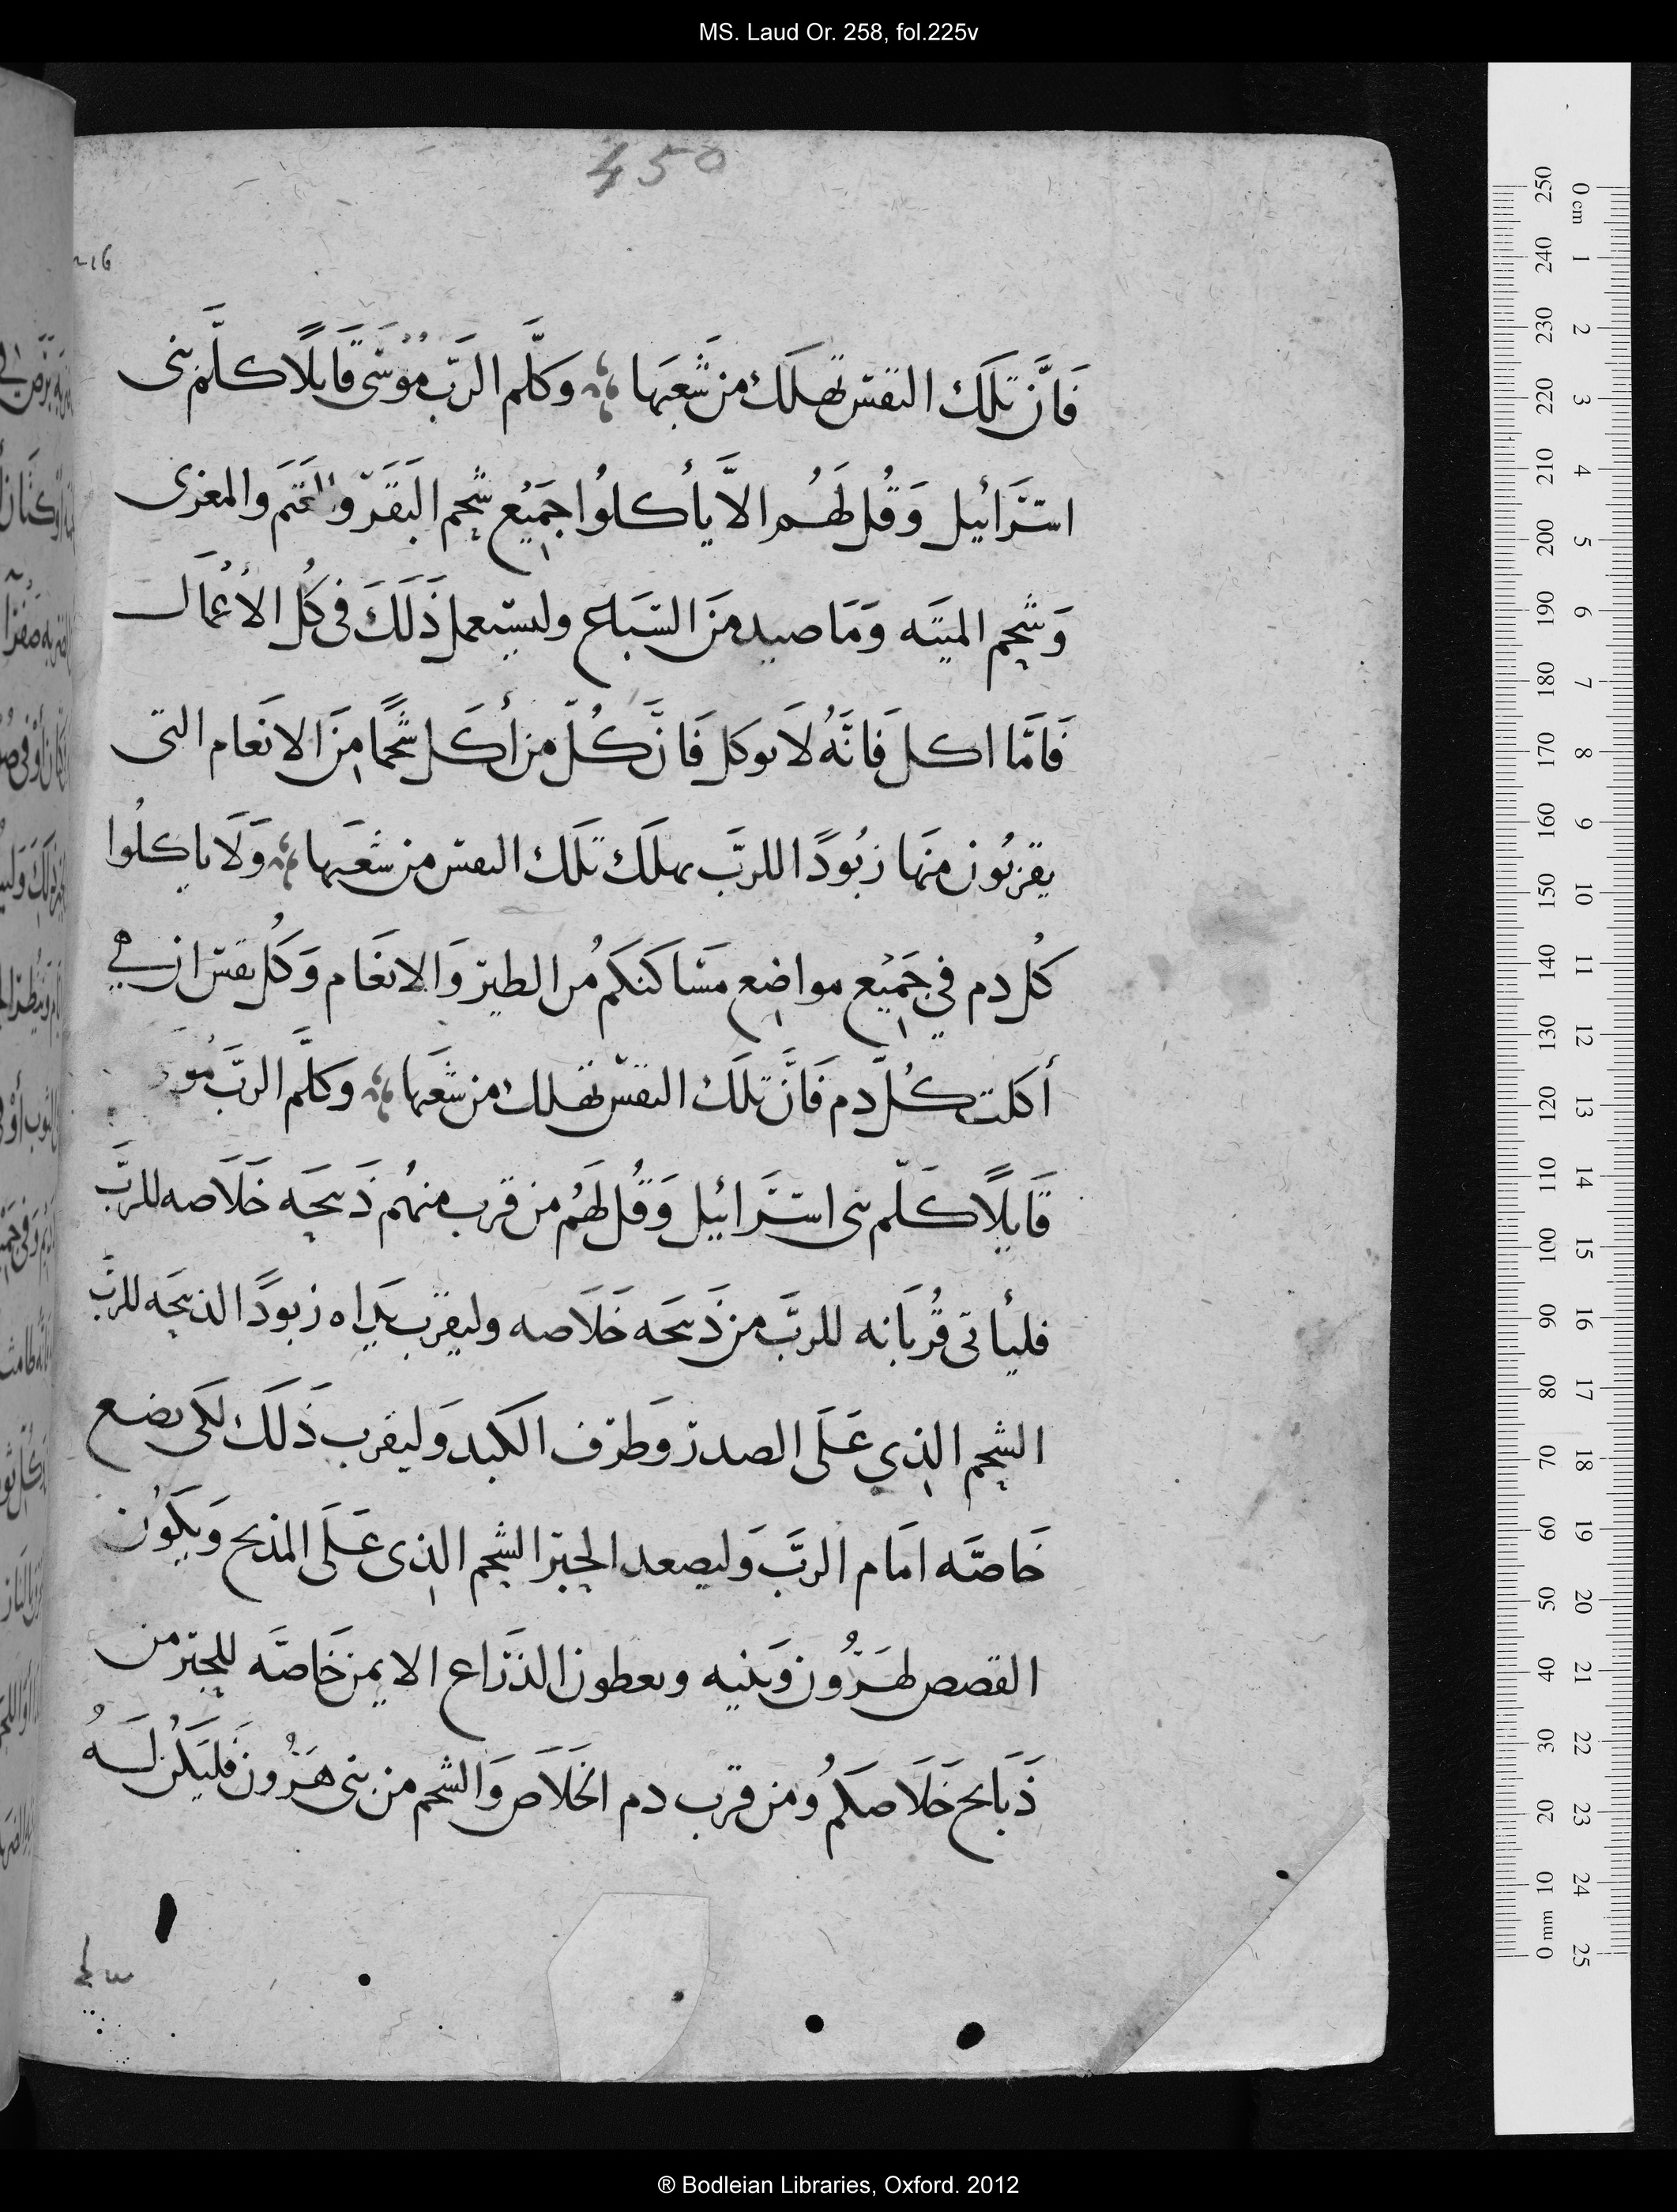 MS. Laud Or. 258, fol.225v
450
فَاِنَّ تلَك النفس تهلَك من شَعبَها وكلَّم الرَبّ مُوسَى قَايلًا كلَّم بنى
اسَرائيل وَقُل لهُم الاَّ يأكلوُا جَميْع شحم البَقَر والغَنَم والمعزى
وَشحم الميتَه وَمَا صيد منَ السّبَاع وليستعمل ذَلَكَ فى كُل الأعمَال
فَامَّا اكل فَانَّهُ لاَ يوكل فَانَّ كُلّ من أكَل شحمًا منَ الانعَام التى
يقربُون منهَا زبُودًا للربَّ يهلَك تلَك النفس من شعَبها وَلَا ياكلُوا
كُل دم في جَميْع مواضع مسَاكنكُم من الطير وَالانعَام وَكُل نفس ان هى
أكلت كُلّ دم فَانَّ تلَك النفس تهلك من شَعَبها وكلَّم الربَّ مُو
قَايلًا كَلّم بنى اسَرائيل وَقُل لهَمُ من قرب منهُم ذَبيحَه خَلاَصه للربَّ
فليأتى قُربَانه للربَّ من ذَبيحَه خَلاَصه وليقرب يَداه زبودًا الذبيحَه للربَّ
الشحم الذي عَلَى الصدر وَطرف الكبد وَليقرب ذَلَك لكى يضع
خَاصَّه امَام الربَّ وَليصعد الحبر الشحم الذى عَلَى المذبح وَيكَوُن
القصص لهَرُون وَبنيه ويعطون الذَراع الايمن خَاصَّه للحبر من
ذَبَايح خَلَاصكمُ ومن قرب دم الخَلَاص وَالشحم من بنى هَرُون فَليَكُن لَهُ
® Bodleian Libraries, Oxford. 2012